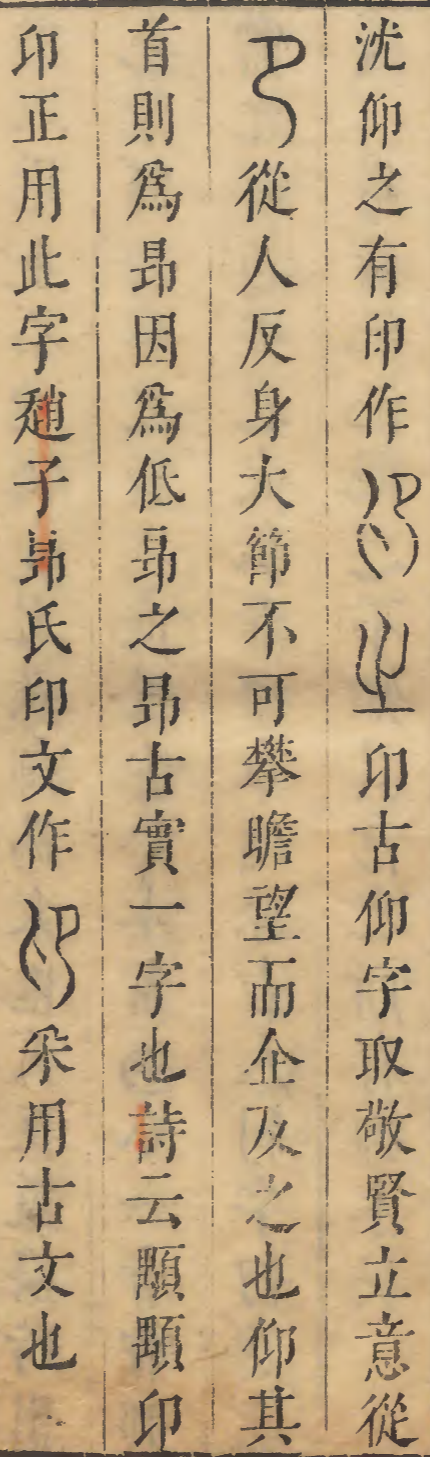 沈仰之有印作㞢印古仰字取敬賢立意從
從人反身大節不可攀瞻望而企及之也仰其
首則爲昻因爲低昻之昻古實一字也詩云顒顒卬
卬正用此字趙子昻氏印文作采用古文也